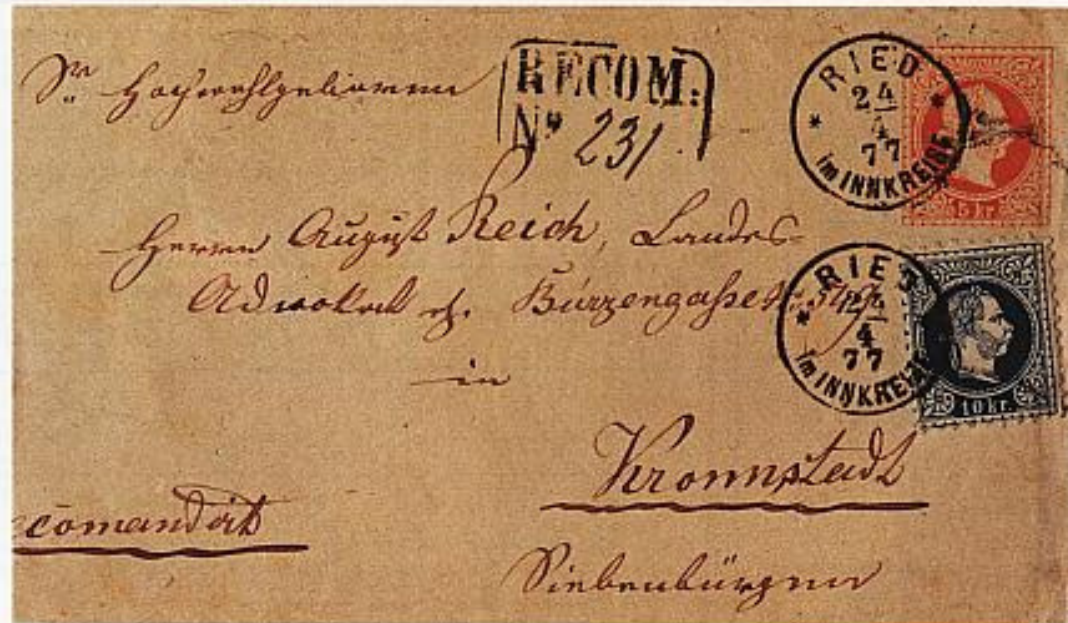 Sr Hochwohlgeboren
RECOM:
No 231
RIED
24
4
77
im INNKREISE
5 kr
Herrn August Reich, Landes-
Advokat Burzengasse
RIED
24
4
77
im INNKREISE
10 kr.
in
Kronnstadt
comandirt
Siebenbürgen